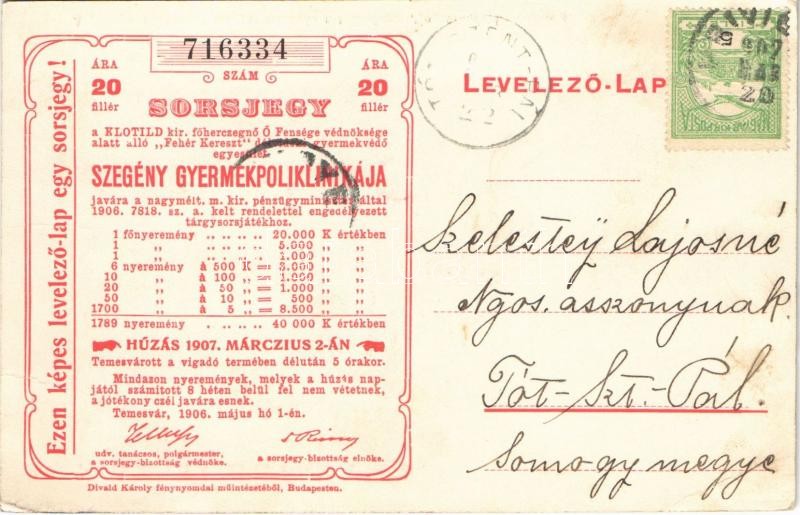 Ezen képes levelező-lap egy sorsjegy!
716334
SZÁM
ÁRA
20
fillér
ÁRA
20
fillér
SORSJEGY
a KLOTILD kir. főherczegnő Ő Fensége védnöksége
alatt álló „Fehér Kereszt" gyermekvédő
egyesület
SZEGÉNY GYERMEKPOLIKLINIKÁJA
javára a nagymélt. m. kir. pénzügyminiszter által
1906. 7818. sz. a. kelt rendelettel engedélyezett
tárgysorsjátékhoz.
1 főnyeremény .. .. .. .. 20.000 K értékben
1 „ .. .. .. .. 5.000 „ „
1 „ .. .. .. .. 1.000 „ „
6 nyeremény à 500 K = 3.000 „ „
10 „ à 100 „ = 1.000 „ „
20 „ à 50 „ = 1.000 „ „
50 „ à 10 „ = 500 „ „
1700 „ à 5 „ = 8.500 „ „
1789 nyeremény .. .. .. .. 40 000 K értékben
HÚZÁS 1907. MÁRCZIUS 2-ÁN
Temesvárott a vigadó termében délután 5 órakor.
Mindazon nyeremények, melyek a húzás nap-
jától számított 8 héten belül fel nem vétetnek,
a jótékony czél javára esnek.
Temesvár, 1906. május hó 1-én.
udv. tanácsos, polgármester,
a sorsjegy-bizottság védnöke.
a sorsjegy-bizottság elnöke.
Divald Károly fénynyomdai műintézetéből, Budapesten.
LEVELEZŐ-LAP
MAGYAR KIR. POSTA
Szelestey Lajosné
Ngos. asszonynak.
Tót-Szt.-Pál.
Somogy megye